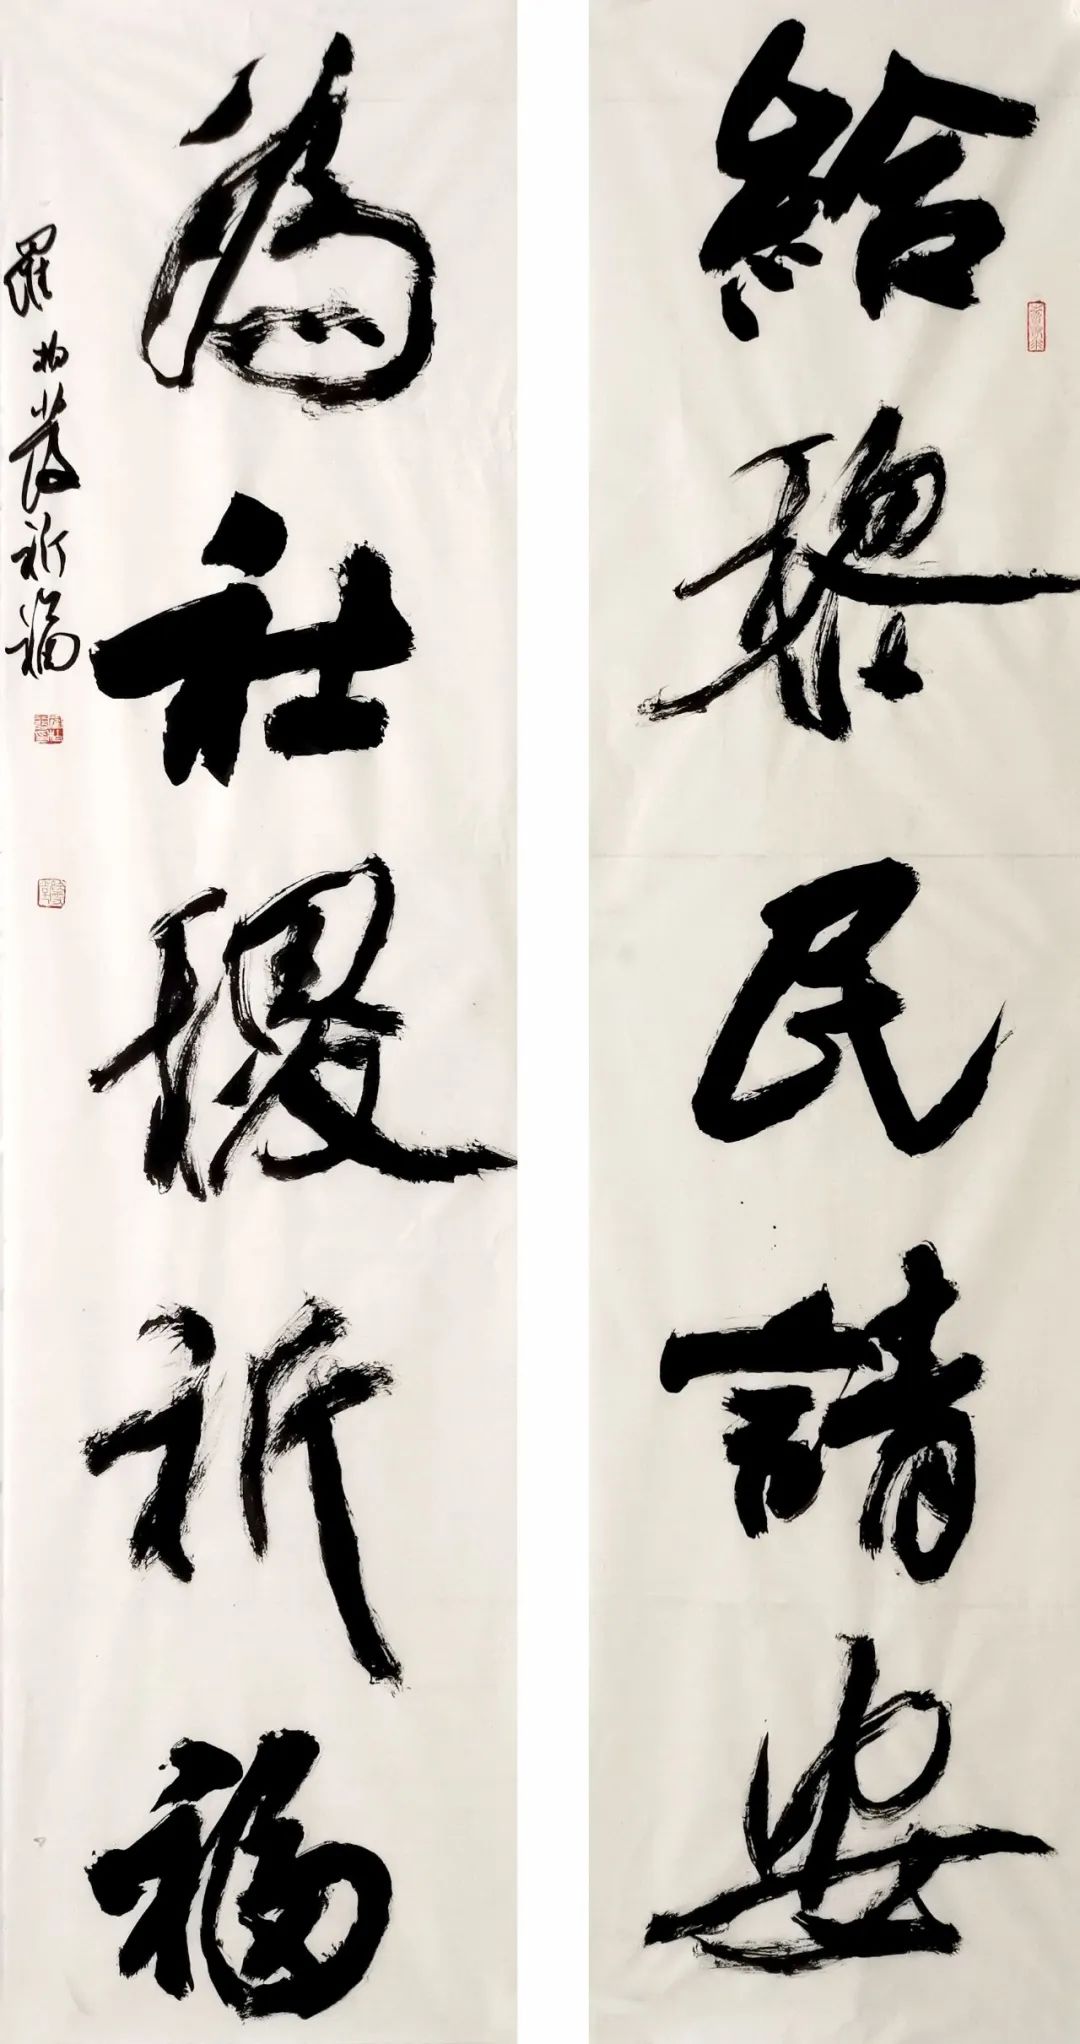 給黎民請安
為社稷祈福
羅柏祈福